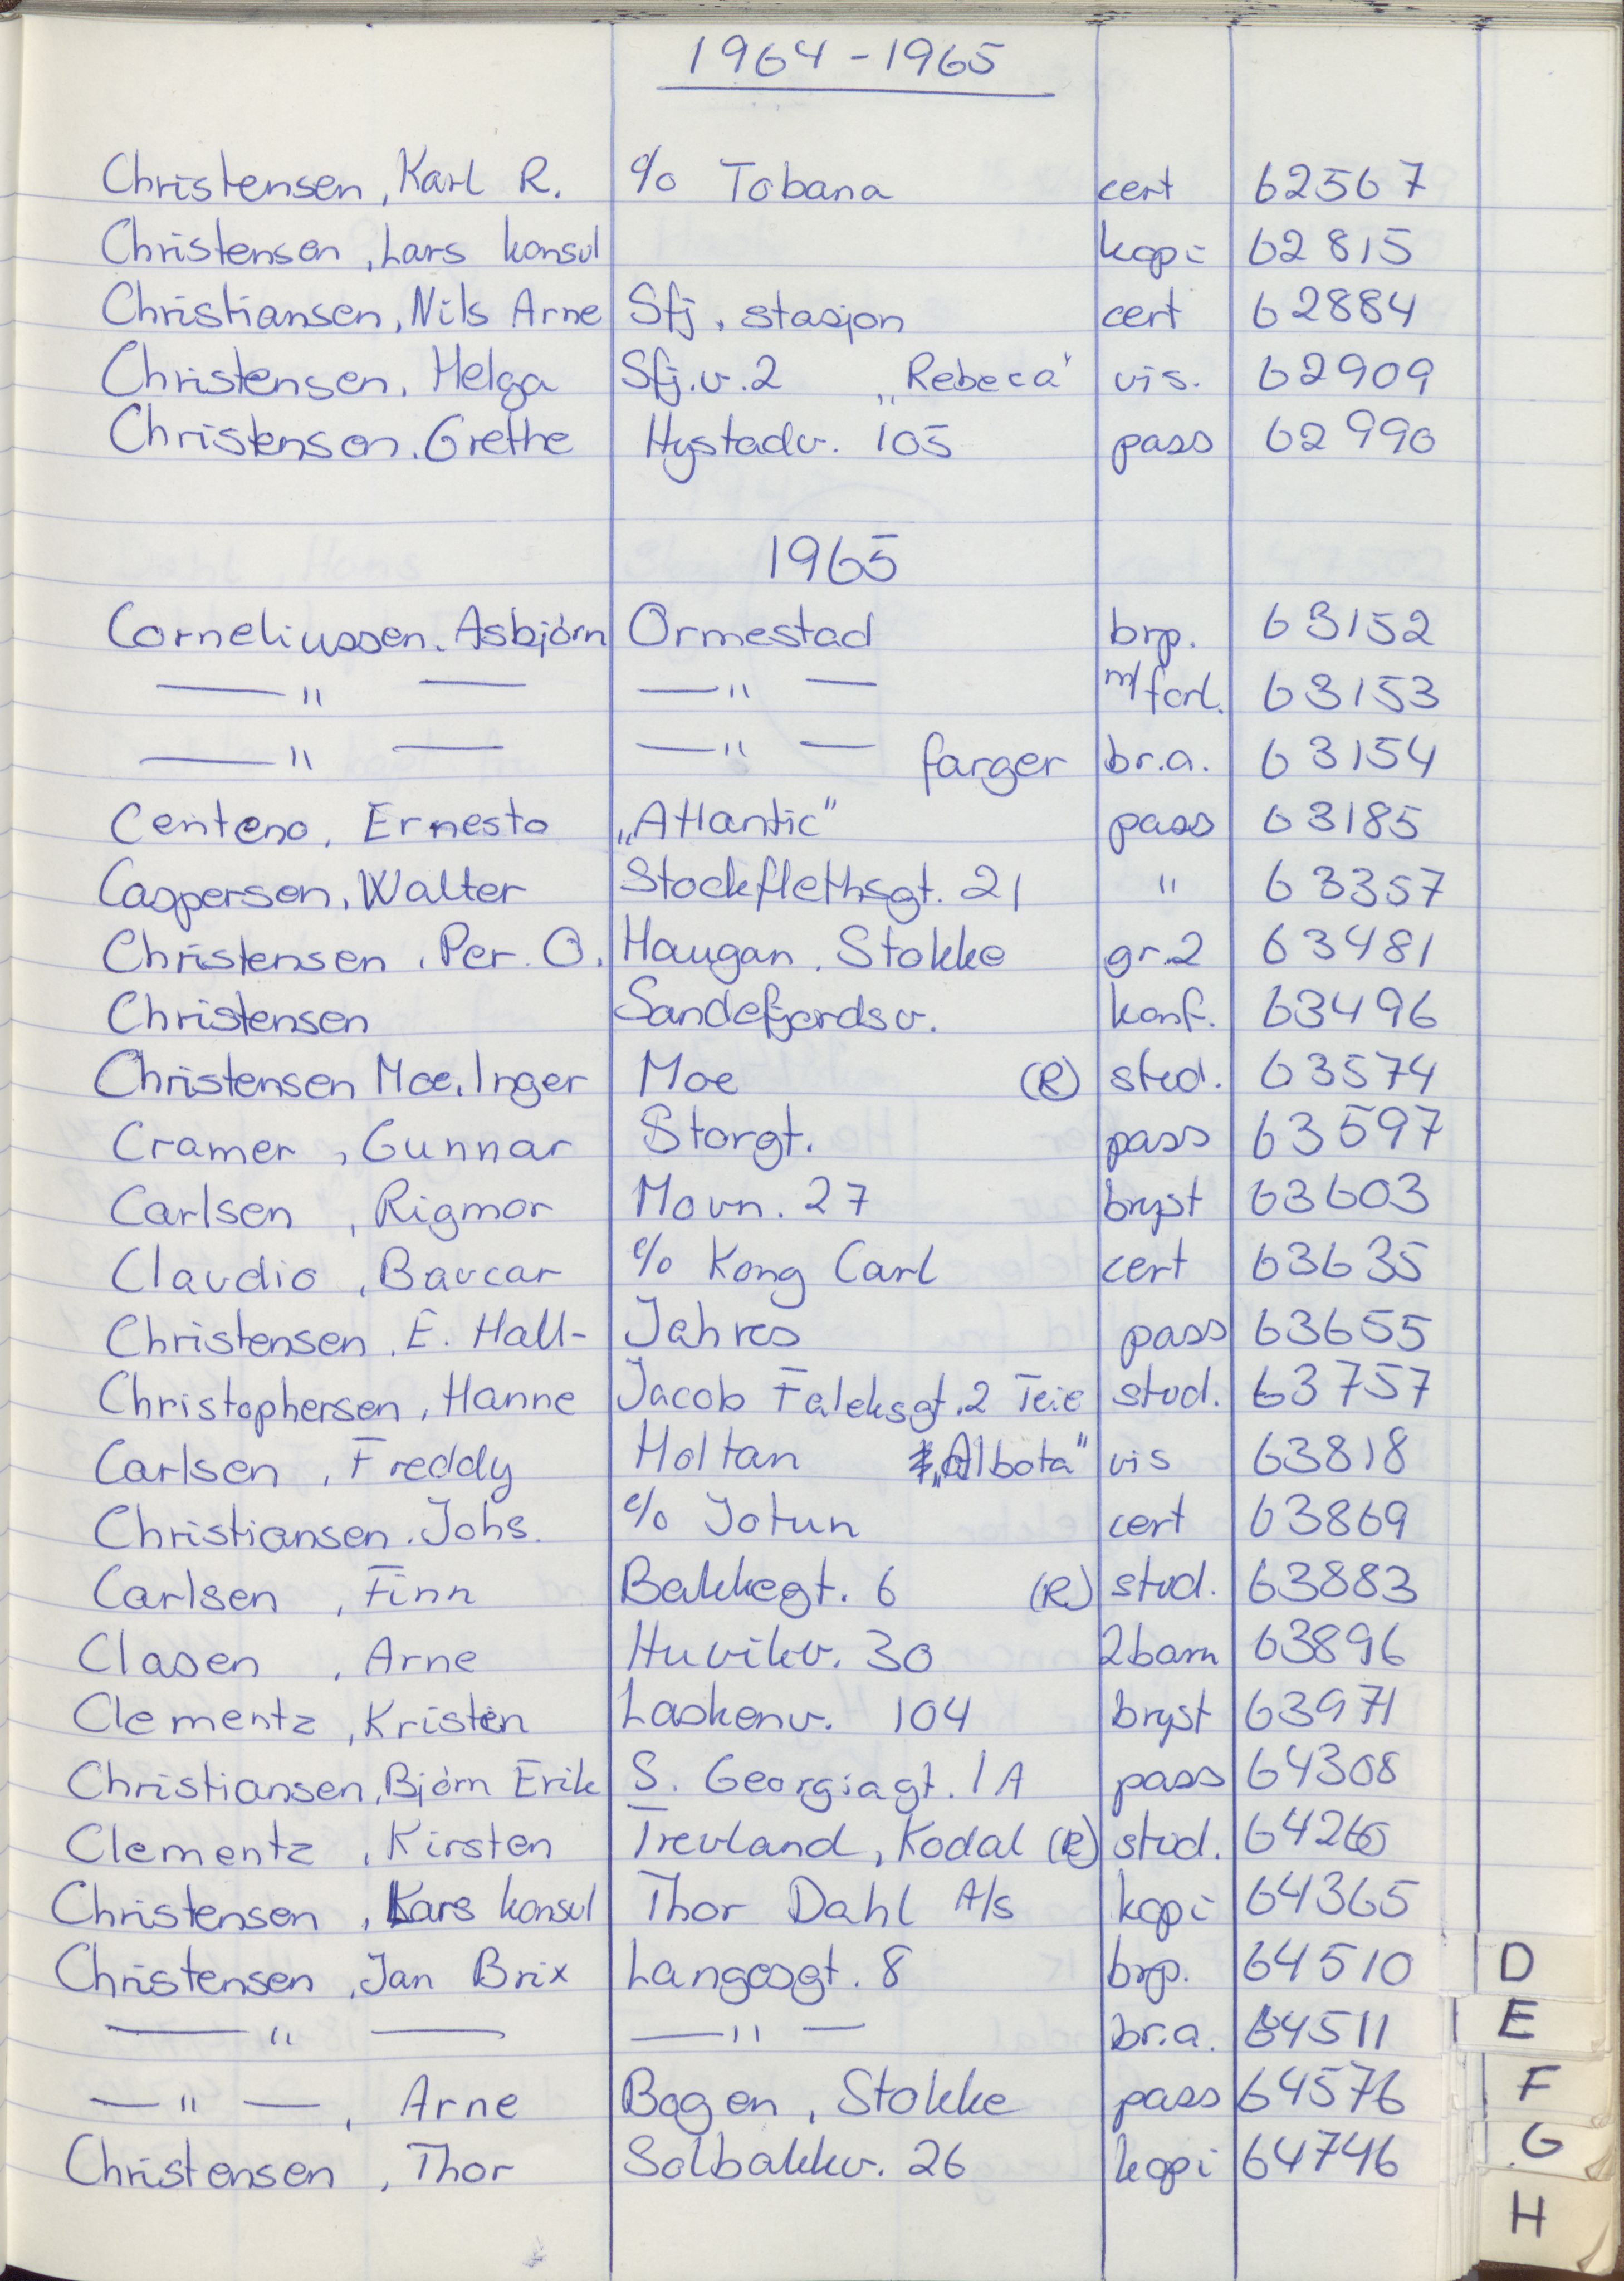 1964-1965
Christensen, Karl R. c/o Tobana cert 62567
Christensen, Lars konsul kopi 62815
Christiansen, Nils Arne Sfj. stasjon cert 62884
Christensen, Helga Sfj.v.2 „Rebeca" vis. 62909
Christensen. Grethe Hystadv. 105 pass 62990
1965
Corneliussen. Asbjörn Ormestad brp. 63152
—"— —"— m/forl. 63153
—"— —"— farger br.a. 63154
Centeno, Ernesto „Atlantic" pass 63185
Caspersen, Walter Stockflethsgt. 21 " 63357
Christensen, Per O. Haugan, Stokke gr.2 63481
Christensen Sandefjordsv. konf. 63496
Christensen Moe, Inger Moe (R) stud. 63574
Cramer, Gunnar Storgt. pass 63597
Carlsen, Rigmor Movn. 27 bryst 63603
Claudio, Baucar c/o Kong Carl cert 63635
Christensen, E. Hall- Jahres pass 63655
Christophersen, Hanne Jacob Falcksgt.2 Teie stud. 63757
Carlsen, Freddy Holtan „Albota" vis 63818
Christiansen. Johs. c/o Jotun cert 63869
Carlsen, Finn Bakkegt. 6 (R) stud. 63883
Clasen, Arne Huvikv. 30 2barn 63896
Clementz, Kristin Laskenv. 104 bryst 63971
Christiansen, Björn Erik S. Georgiagt. 1A pass 64308
Clementz, Kirsten Trevland, Kodal (R) stud. 64265
Christensen, Lars konsul Thor Dahl A/s kopi 64365
Christensen, Jan Brix Langesgt. 8 brp. 64510 D
—"— —"— br.a. 64511 E
—"—, Arne Bogen, Stokke pass 64576 F
Christensen, Thor Solbakkv. 26 kopi 64746 G
H